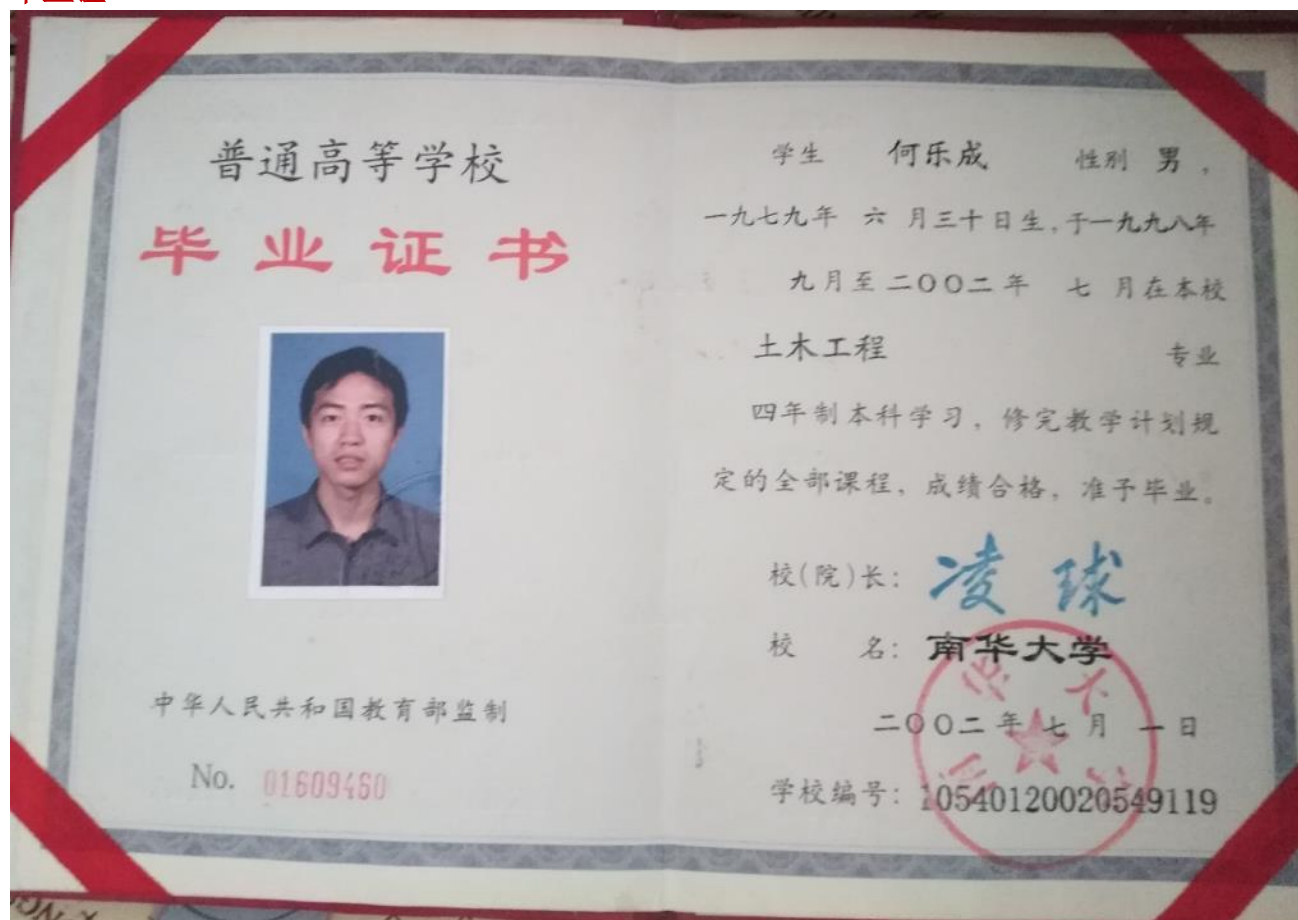 普通高等学校
毕业证书
中华人民共和国教育部监制
No. 01609460
学生 何乐成 性别 男，
一九七九年 六 月三十日生，于一九九八年
九月至二〇〇二年 七 月在本校
土木工程 专业
四年制本科学习，修完教学计划规
定的全部课程，成绩合格，准予毕业。
校(院)长：凌球
校 名：南华大学
二〇〇二年七月一日
学校编号：105401200205491​19